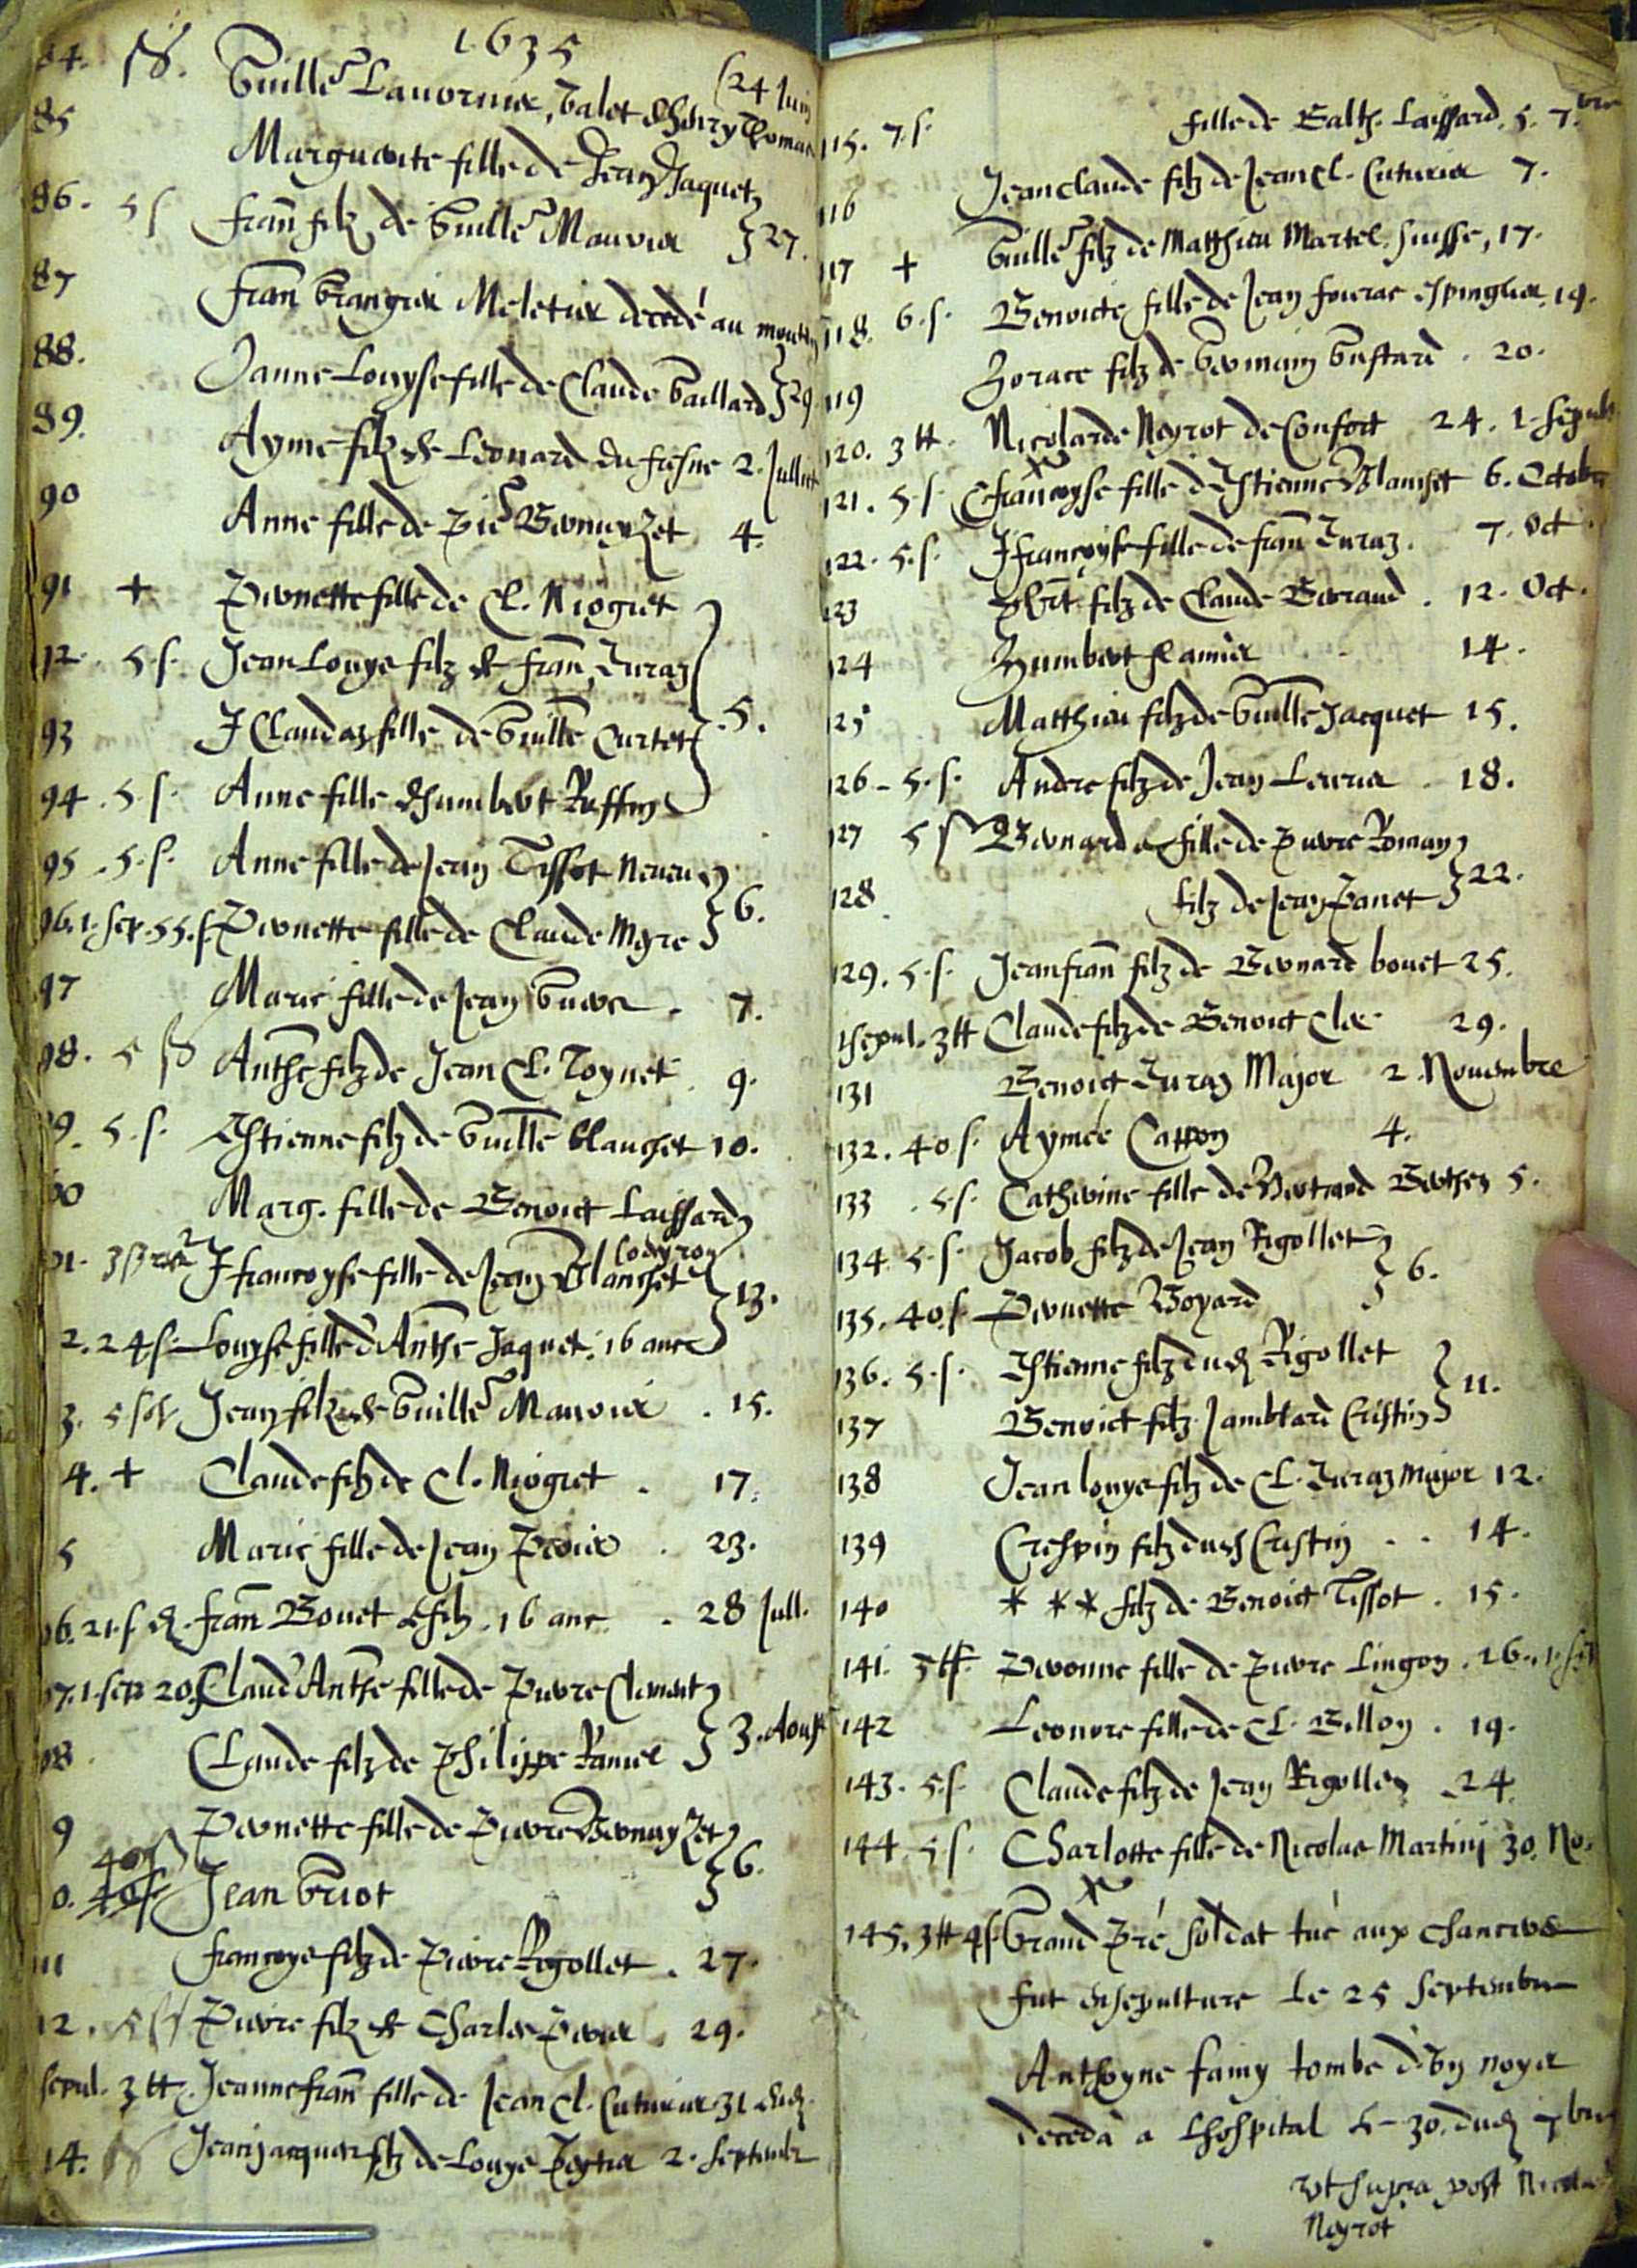 1635
84. Guille Lavornier, valet d'Henry Thomas 24 Juin
85 Marguerite fille de Jean Jaquet
86. 5 s Fran filz de Guille Mauvier 27.
87 Fran Grangier Meletier decedé au
88. Janne Louyse fille de Claude Gaillard 29
89. Ayme filz de Léonard du fresne 2. Jullet
90 Anne fille de Pie Bernuyzet 4.
91 + Pernette fille de Cl. Niogret
12. 5.s. Jean Louys filz de fran Juraz
93 J Claudaz fille de Guille Curtet 5.
94. 5.s. Anne fille d'humbert Ruffin
95. 5.s. Anne fille de Jean Tissot neveu
96. 1. sep. 55.s. Pernette fille de Claude Mgre 6.
97 Marie fille de Jean 7.
98. 5 Anthe filz de Jean Cl. Toynet 9.
9. 5.s. Estienne filz de Guille blanchet 10.
00 Marg. fille de Benoict Laissard
01. J francoyse fille de Jean Blanchet 13.
2. 24 s. Louyse fille d'Anthe Jaquet. 16 ans
3. 5 Jean filz de Guille Mauvier . 15.
4. + Claude filz de Cl. Niogret . 17.
5 Marie fille de Jean Perrier . 23.
06. 21. s fran Bouet filz. 16 ans . 28 Jull.
07. 1. sep 20 s Claud'Anthe fille de Pierre Clement
08. Claude filz de Philippe Ramel 3. Aoust
9 Pernette fille de Pierre Bernuyzet
0. 40 s Jean Griot 6.
111 francoys filz de Pierre Rigollet . 27.
12. 5 s Pierre filz de Charles Perrier . 29.
sepul. 3 tt. Jeannefran fille de Jean Cl. Cuturier 31 dud.
14. Jean jacques filz de Louys 2. Septembr
115. 7.s. fille de Balth. Laissard. 5. 7.bre
116 Jean claude filz de Jean Cl. Cuturier 7.
117 + Guille filz de Matthieu Martel. suisse, 17.
118. 6.s. Benoicte fille de Jean fourac espinglier. 19.
119 Horace filz de Germain Gustard . 20.
120. 3 tt. Nicolarde Neyrot de Confort 24. 1. sepult
121. 5.s. francoyse fille d'Estienne Blanchet 6. Octobre
122. 5.s. Jfrancoyse fille de fran Juraz. 7. Oct.
123 Phbt filz de Claude Berraud . 12. Oct.
124 Humbert flamier 14.
125 Matthieu filz de Guille Jacquet 15.
126 - 5.s. Andre filz de Jean Levrier . 18.
127 5 s Bernarde fille de Pierre Romany
128 filz de Jean Panet 22.
129. 5.s. Jeanfran filz de Bernard bouet 25.
1 sepul. 3 tt Claude filz de Benoict Clere 29.
131 Benoict Juraz Major 2. Novembre
132. 40 s. Aymée Catton 4.
133 . 5.s. Catherine fille de Bertrand Berthey 5.
134. 5.s. Jacob filz de Jean Rigollet
135. 40.s. Pernette Boyard 6.
136. 5.s. Estienne filz dud Rigollet
137 Benoict filz Jamblard Cristin 11.
138 Jean louys filz de Cl. Juraz major 12.
139 Crespin filz dud Cristin . . 14.
140 * * * filz de Benoict Tissot . 15.
141. 3 tt. Pernonne fille de Pierre Lingon . 16. 1. sep
142 Leonore fille de Cl. Billon . 19.
143. 5.s. Claude filz de Jean Rigollet 24.
144. 5.s. Charlotte fille de Nicolas Martin 30. No.
145. 3 tt 4 s Grand Pré soldat tué aux chancres
fut ensepulture le 25 septembre
Anthoyne famy tombe d'vn noyer
decedà a l'hospital le 30. dud 7bre
vt supra post Nicolar
Neyrot